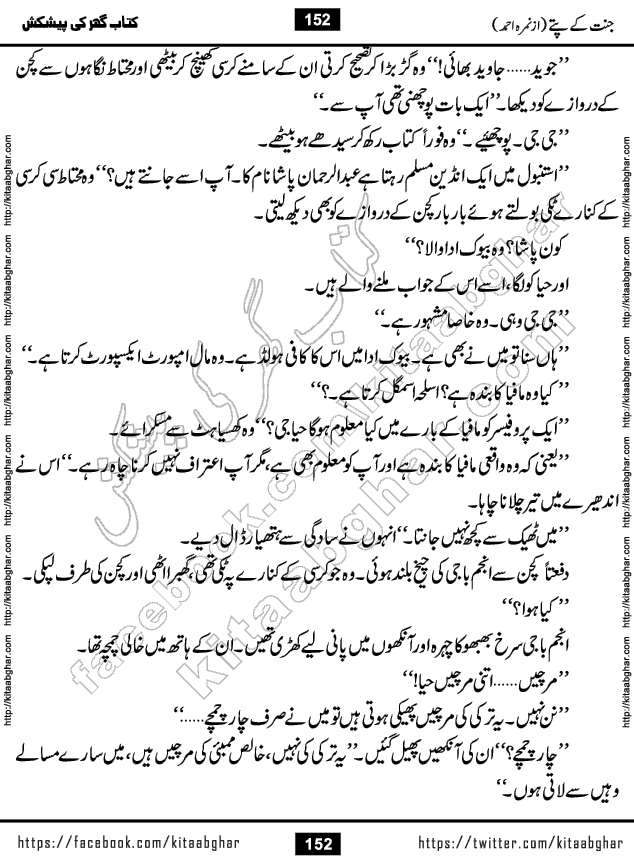 جنت کے پتے (از نمرہ احمد)
152
کتاب گھر کی پیشکش
”جوید...... جاوید بھائی!“ وہ گڑبڑا کر تصحیح کرتی ان کے سامنے کرسی کھینچ کر بیٹھی اور محتاط نگاہوں سے کچن
کے دروازے کو دیکھا۔ ”ایک بات پوچھنی تھی آپ سے۔“
”جی جی۔ پوچھیئے۔“ وہ فوراً کتاب رکھ کر سیدھے ہو بیٹھے۔
”استنبول میں ایک انڈین مسلم رہتا ہے عبدالرحمان پاشا نام کا۔ آپ اسے جانتے ہیں؟“ وہ محتاط سی کرسی
کے کنارے ٹکی بولتے ہوئے بار بار کچن کے دروازے کو بھی دیکھ لیتی۔
کون پاشا؟ وہ بیوک ادا والا؟“
اور حیا کو لگا، اسے اس کے جواب ملنے والے ہیں۔
”جی جی وہی۔ وہ خاصا مشہور ہے۔“
”ہاں سنا تو میں نے بھی ہے۔ بیوک ادا میں اس کا کافی ہولڈ ہے۔ وہ مال امپورٹ ایکسپورٹ کرتا ہے۔“
”کیا وہ مافیا کا بندہ ہے؟ اسلحہ اسمگل کرتا ہے۔؟“
”ایک پروفیسر کو مافیا کے بارے میں کیا معلوم ہو گا حیا جی؟“ وہ کھسیاہٹ سے مسکرائے۔
”یعنی کہ وہ واقعی مافیا کا بندہ ہے اور آپ کو معلوم بھی ہے، مگر آپ اعتراف نہیں کرنا چاہ رہے۔“ اس نے
اندھیرے میں تیر چلانا چاہا۔
”میں ٹھیک سے کچھ نہیں جانتا۔“ انہوں نے سادگی سے ہتھیار ڈال دیے۔
دفعتاً کچن سے انجم باجی کی چیخ بلند ہوئی۔ وہ جو کرسی کے کنارے پہ ٹکی تھی، گھبرا اٹھی اور کچن کی طرف لپکی۔
”کیا ہوا؟“
انجم باجی سرخ بھبھوکا چہرہ اور آنکھوں میں پانی لیے کھڑی تھیں۔ ان کے ہاتھ میں خالی چمچہ تھا۔
”مرچیں...... اتنی مرچیں حیا!“
”نن نہیں۔ یہ ترکی کی مرچیں پھیکی ہوتی ہیں تو میں نے صرف چار چمچے......“
”چار چمچے؟“ ان کی آنکھیں پھیل گئیں۔ ”یہ ترکی کی نہیں، خالص ممبئی کی مرچیں ہیں، میں سارے مسالے
وہیں سے لاتی ہوں۔“
کتاب گھر کی پیشکش
facebook.com/kitaabghar
kitaabghar.com
http://kitaabghar.com http://kitaabghar.com http://kitaabghar.com http://kitaabghar.com http://kitaabghar.com http://kitaabghar.com
http://kitaabghar.com http://kitaabghar.com http://kitaabghar.com http://kitaabghar.com http://kitaabghar.com http://kitaabghar.com
https://facebook.com/kitaabghar
152
https://twitter.com/kitaabghar